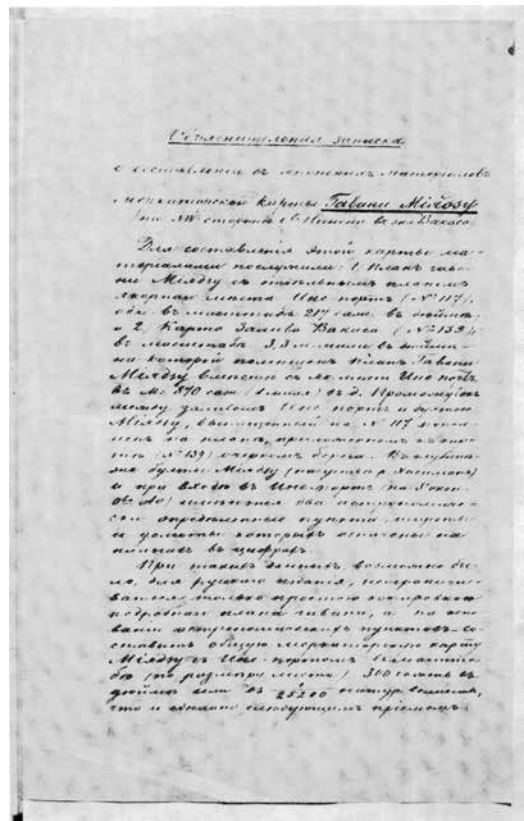 Объяснительная записка
о составленіи съ японскихъ матеріаловъ
меркаторской карты Гавани Міядзу
(на NW сторонѣ о. Нипона въ зал. Вакаса)
Для составленія этой карты ма-
теріалами послужили: 1) Планъ гава-
ни Міядзу съ отдѣльнымъ планомъ
якорнаго мѣста Ине портъ (№ 117),
оба въ масштабѣ 217 саж. въ дюймѣ,
и 2) Карта Залива Вакаса (№ 139)
въ масштабѣ 3,3 м. мили въ дюймѣ,
на которой помѣщенъ планъ Гавани
Міядзу вмѣстѣ съ як. мѣст. Ине портъ
въ М. 870 саж. въ д. Промежутокъ
между заливомъ Ине портъ и бухтою
Міядзу, на № 117
на планѣ, приложенномъ
(№ 139) берега. Въ глубинѣ
же бухты Міядзу
и при входѣ въ Ине портъ
имѣются два астрономиче-
ски опредѣленные пункта, широты
и долготы которыхъ означены на
планахъ въ цифрахъ.
При такихъ данныхъ возможно бы-
ло, для русскаго изданія, неограничи-
ваться только простою копировкою
подробнаго плана гавани, а на осно-
ваніи астрономическихъ пунктовъ со-
ставить общую меркаторскую карту
Міядзу съ Ине портомъ въ масшта-
бѣ (по размѣру листа) 300 саж. въ
дюймѣ или въ 1/25200 натур. величины,
что и сдѣлано слѣдующимъ пріемомъ: